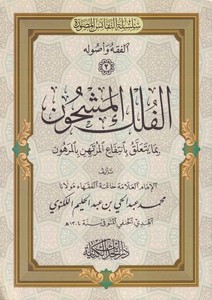 سلسلة النفائس المصورة
الفقه وأصوله
٢
الفلك المشحون
بما يتعلق بانتفاع المرتهن بالمرهون
تأليف
الإمام العلامة خاتمة الفقهاء مولانا
محمد عبد الحي بن عبد الحليم اللكنوي
الهندي الحنفي المتوفى سنة ١٣٠٤هـ